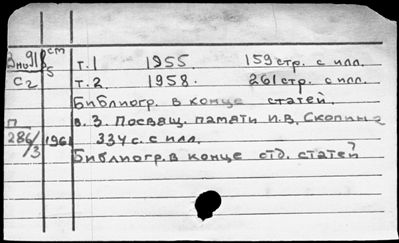 т.1 1955. 159 стр. с илл.
С2 т.2. 1958. 261 стр. с илл.
Библиогр. в конце статей.
П в. 3. Посвящ. памяти И.В. Скопина
286/3 1961 334 с. с илл.
Библиогр. в конце отд. статей